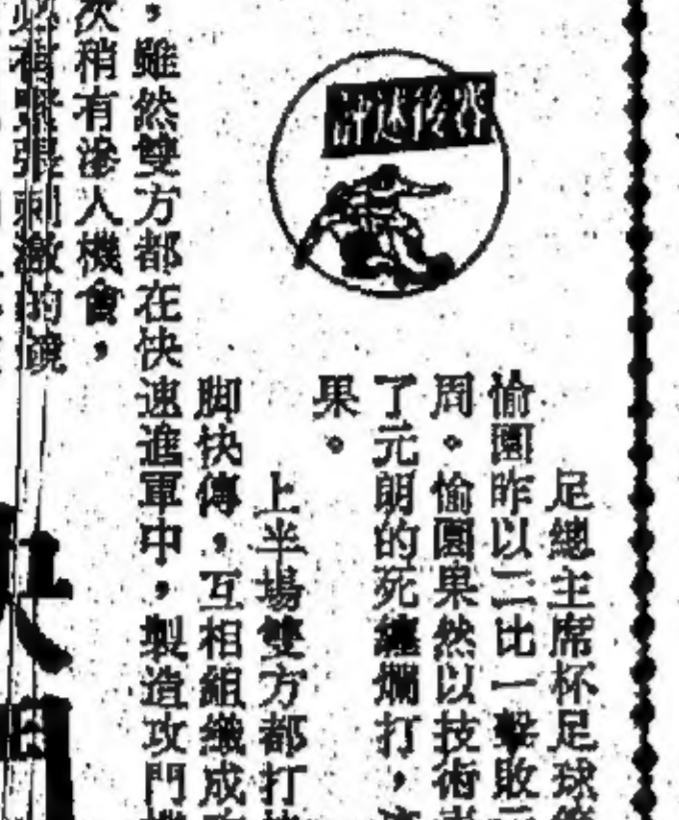 賽後述評
足總主席杯足球
愉園昨以三比一擊敗元
周。愉園果然以技術
了元朗的死纏爛打，
果。
上半場雙方都打
脚快傳，互相組織成
，雖然雙方都在快速進軍中，製造攻門
次稍有滲人機會，
緊張刺激的鏡